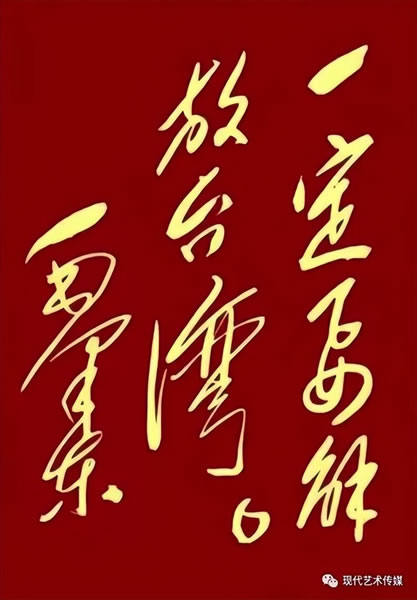 一定要解
放台湾。
毛泽东
现代艺术传媒